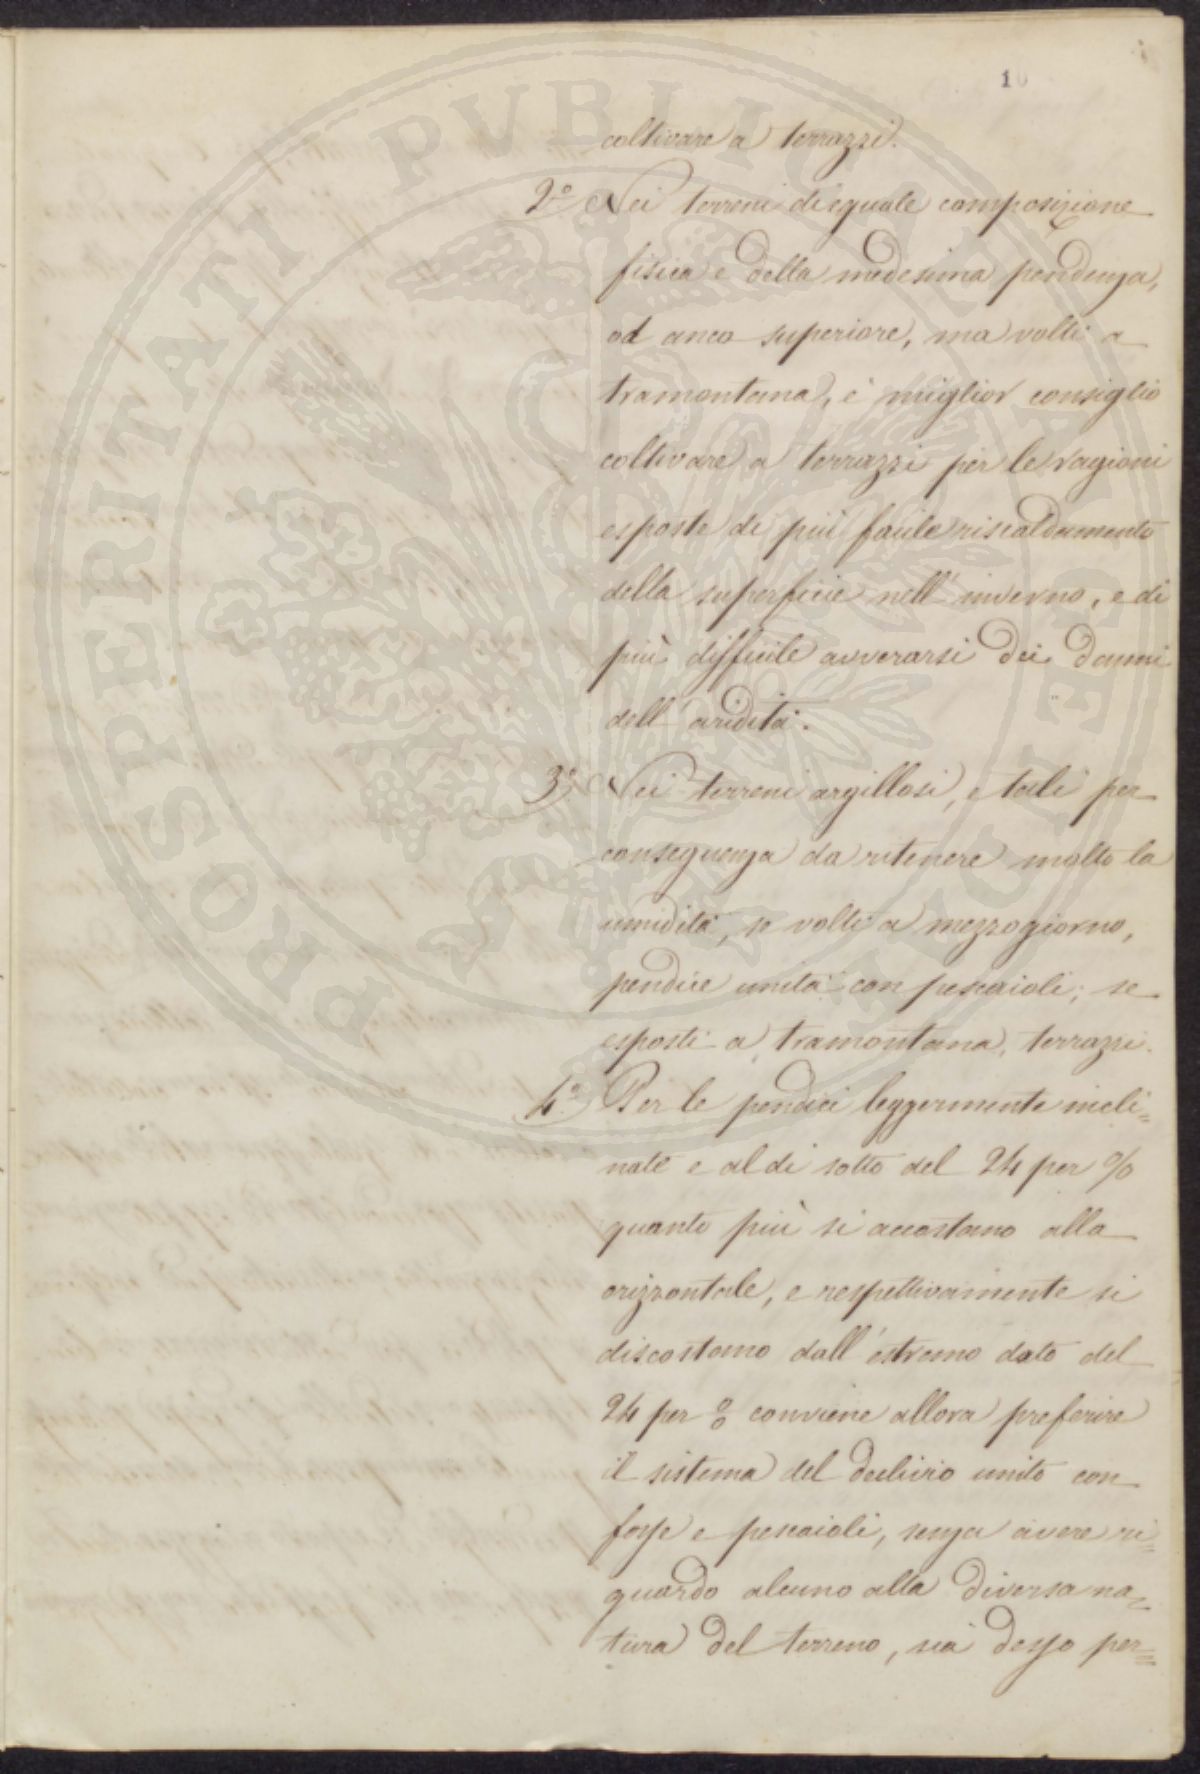 10
coltivare a terrazzi.
2º Nei terreni di eguale composizione
fisica e della medesima pendenza,
od anco superiore, ma volti a
tramontana, è miglior consiglio
coltivare a terrazzi per le ragioni
esposte di più facile riscaldamento
della superficie nell'inverno, e di
più difficile avverarsi dei danni
dell'aridità.
3º Nei terreni argillosi, e tali per
conseguenza da ritenere molto la
umidità, se volti a mezzogiorno,
pendice unita con pescaioli; se
esposti a tramontana, terrazzi.
4º Per le pendici leggermente incli=
nate e al di sotto del 24 per %
quanto più si accostano alla
orizzontale, e respettivamente si
discostano dall'estremo dato del
24 per % conviene allora preferire
il sistema del declivio unito con
fosse e pescaioli, senza avere ri=
guardo alcuno alla diversa na=
tura del terreno, sia desso per=
PROSPERITATI PUBLICAE AUGENDAE